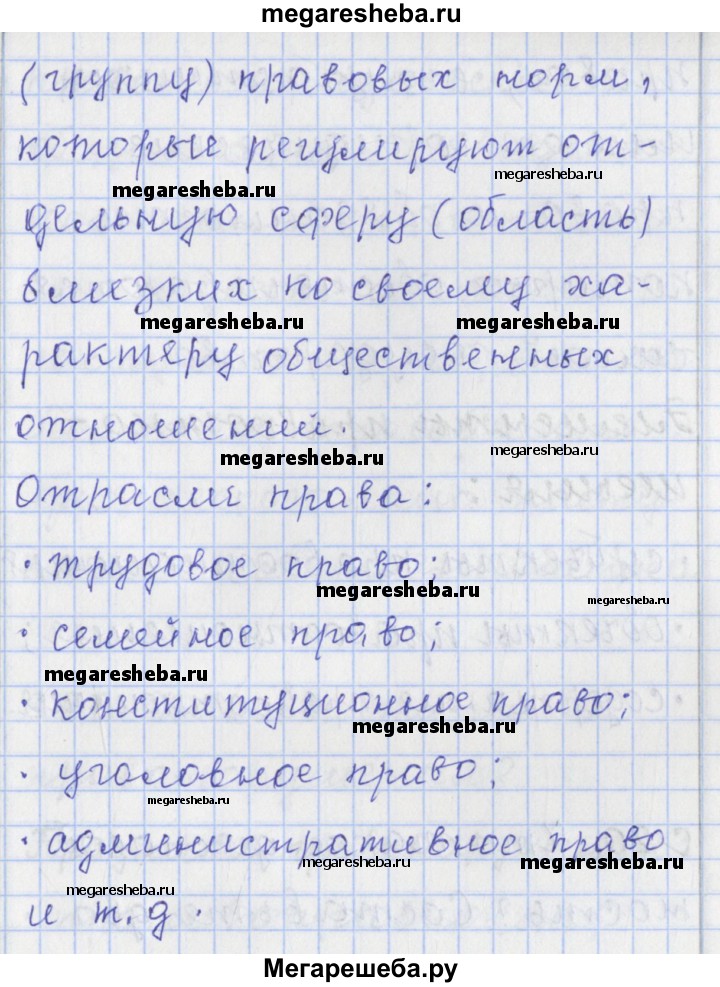 megaresheba.ru
(группу) правовых норм,
которые регулируют от-
megaresheba.ru
megaresheba.ru
дельную сферу (область)
близких по своему ха-
megaresheba.ru megaresheba.ru
рактеру общественных
отношений.
megaresheba.ru
megaresheba.ru
Отрасли права:
· трудовое право;
megaresheba.ru
megaresheba.ru
· семейное право;
megaresheba.ru
· конституционное право;
megaresheba.ru
· уголовное право;
megaresheba.ru
· административное право
megaresheba.ru megaresheba.ru
megaresheba.ru
и т.д.
Мегарешеба.ру